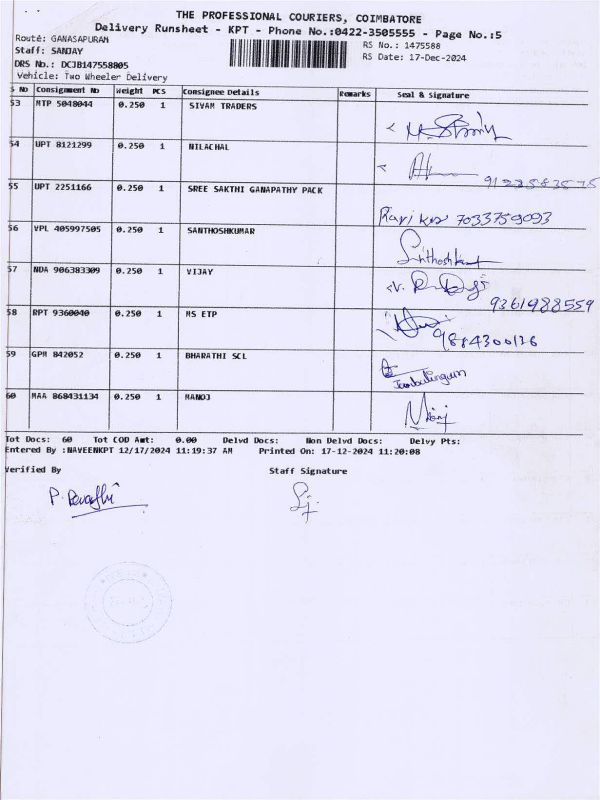 THE PROFESSIONAL COURIERS, COIMBATORE
Delivery Runsheet - KPT - Phone No.:0422-3505555 - Page No.:5
Route: GANASAPURAM
RS No.: 1475588
Staff: SANJAY
RS Date: 17-Dec-2024
DRS No.: DCJB147558805
Vehicle: Two Wheeler Delivery
S No Consignment No Weight PCS Consignee Details Remarks Seal & Signature
53 MTP 5048044 0.250 1 SIVAM TRADERS
54 UPT 8121299 0.250 1 NILACHAL
55 UPT 2251166 0.250 1 SREE SAKTHI GANAPATHY PACK
7033759093
56 VPL 405997505 0.250 1 SANTHOSHKUMAR
57 NDA 906383309 0.250 1 VIJAY
9361988559
58 RPT 9360040 0.250 1 MS ETP
9884300136
59 GPM 842052 0.250 1 BHARATHI SCL
Jambulingam
60 MAA 868431134 0.250 1 MANOJ
Manoj
Tot Docs: 60 Tot COD Amt: 0.00 Delvd Docs: Non Delvd Docs: Delvy Pts:
Entered By :NAVEENKPT 12/17/2024 11:19:37 AM Printed On: 17-12-2024 11:20:08
Verified By Staff Signature